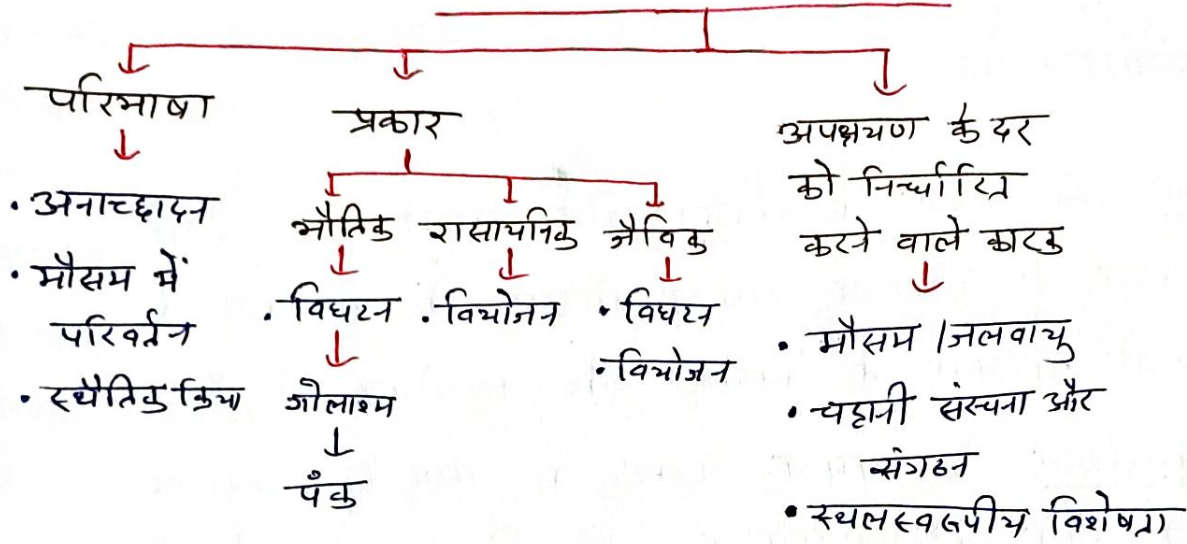 परिभाषा
• अनाच्छादन
• मौसम में
परिवर्तन
• स्थैतिक क्रिया
प्रकार
भौतिक रासायनिक जैविक
• विघटन • वियोजन • विघटन
• वियोजन
गोलाश्म
पंक
अपक्षयण के दर
को निर्धारित
करने वाले कारक
• मौसम/जलवायु
• चट्टानी संरचना और
संगठन
• स्थलस्वरूपीय विशेषता